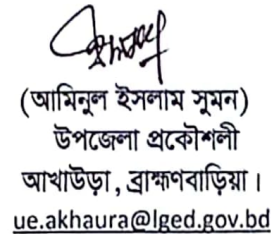 (আমিনুল ইসলাম সুমন)
উপজেলা প্রকৌশলী
আখাউড়া, ব্রাহ্মণবাড়িয়া।
ue.akhaura@lged.gov.bd